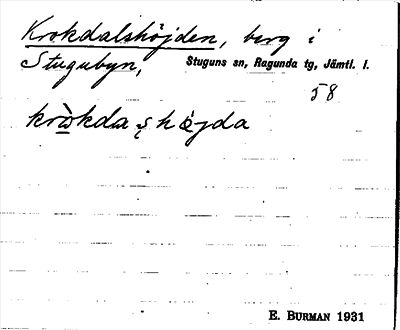 Krokdalshöjden, berg i
Stugubyn, Stuguns sn, Ragunda tg, Jämtl. l.
58
E. BURMAN 1931